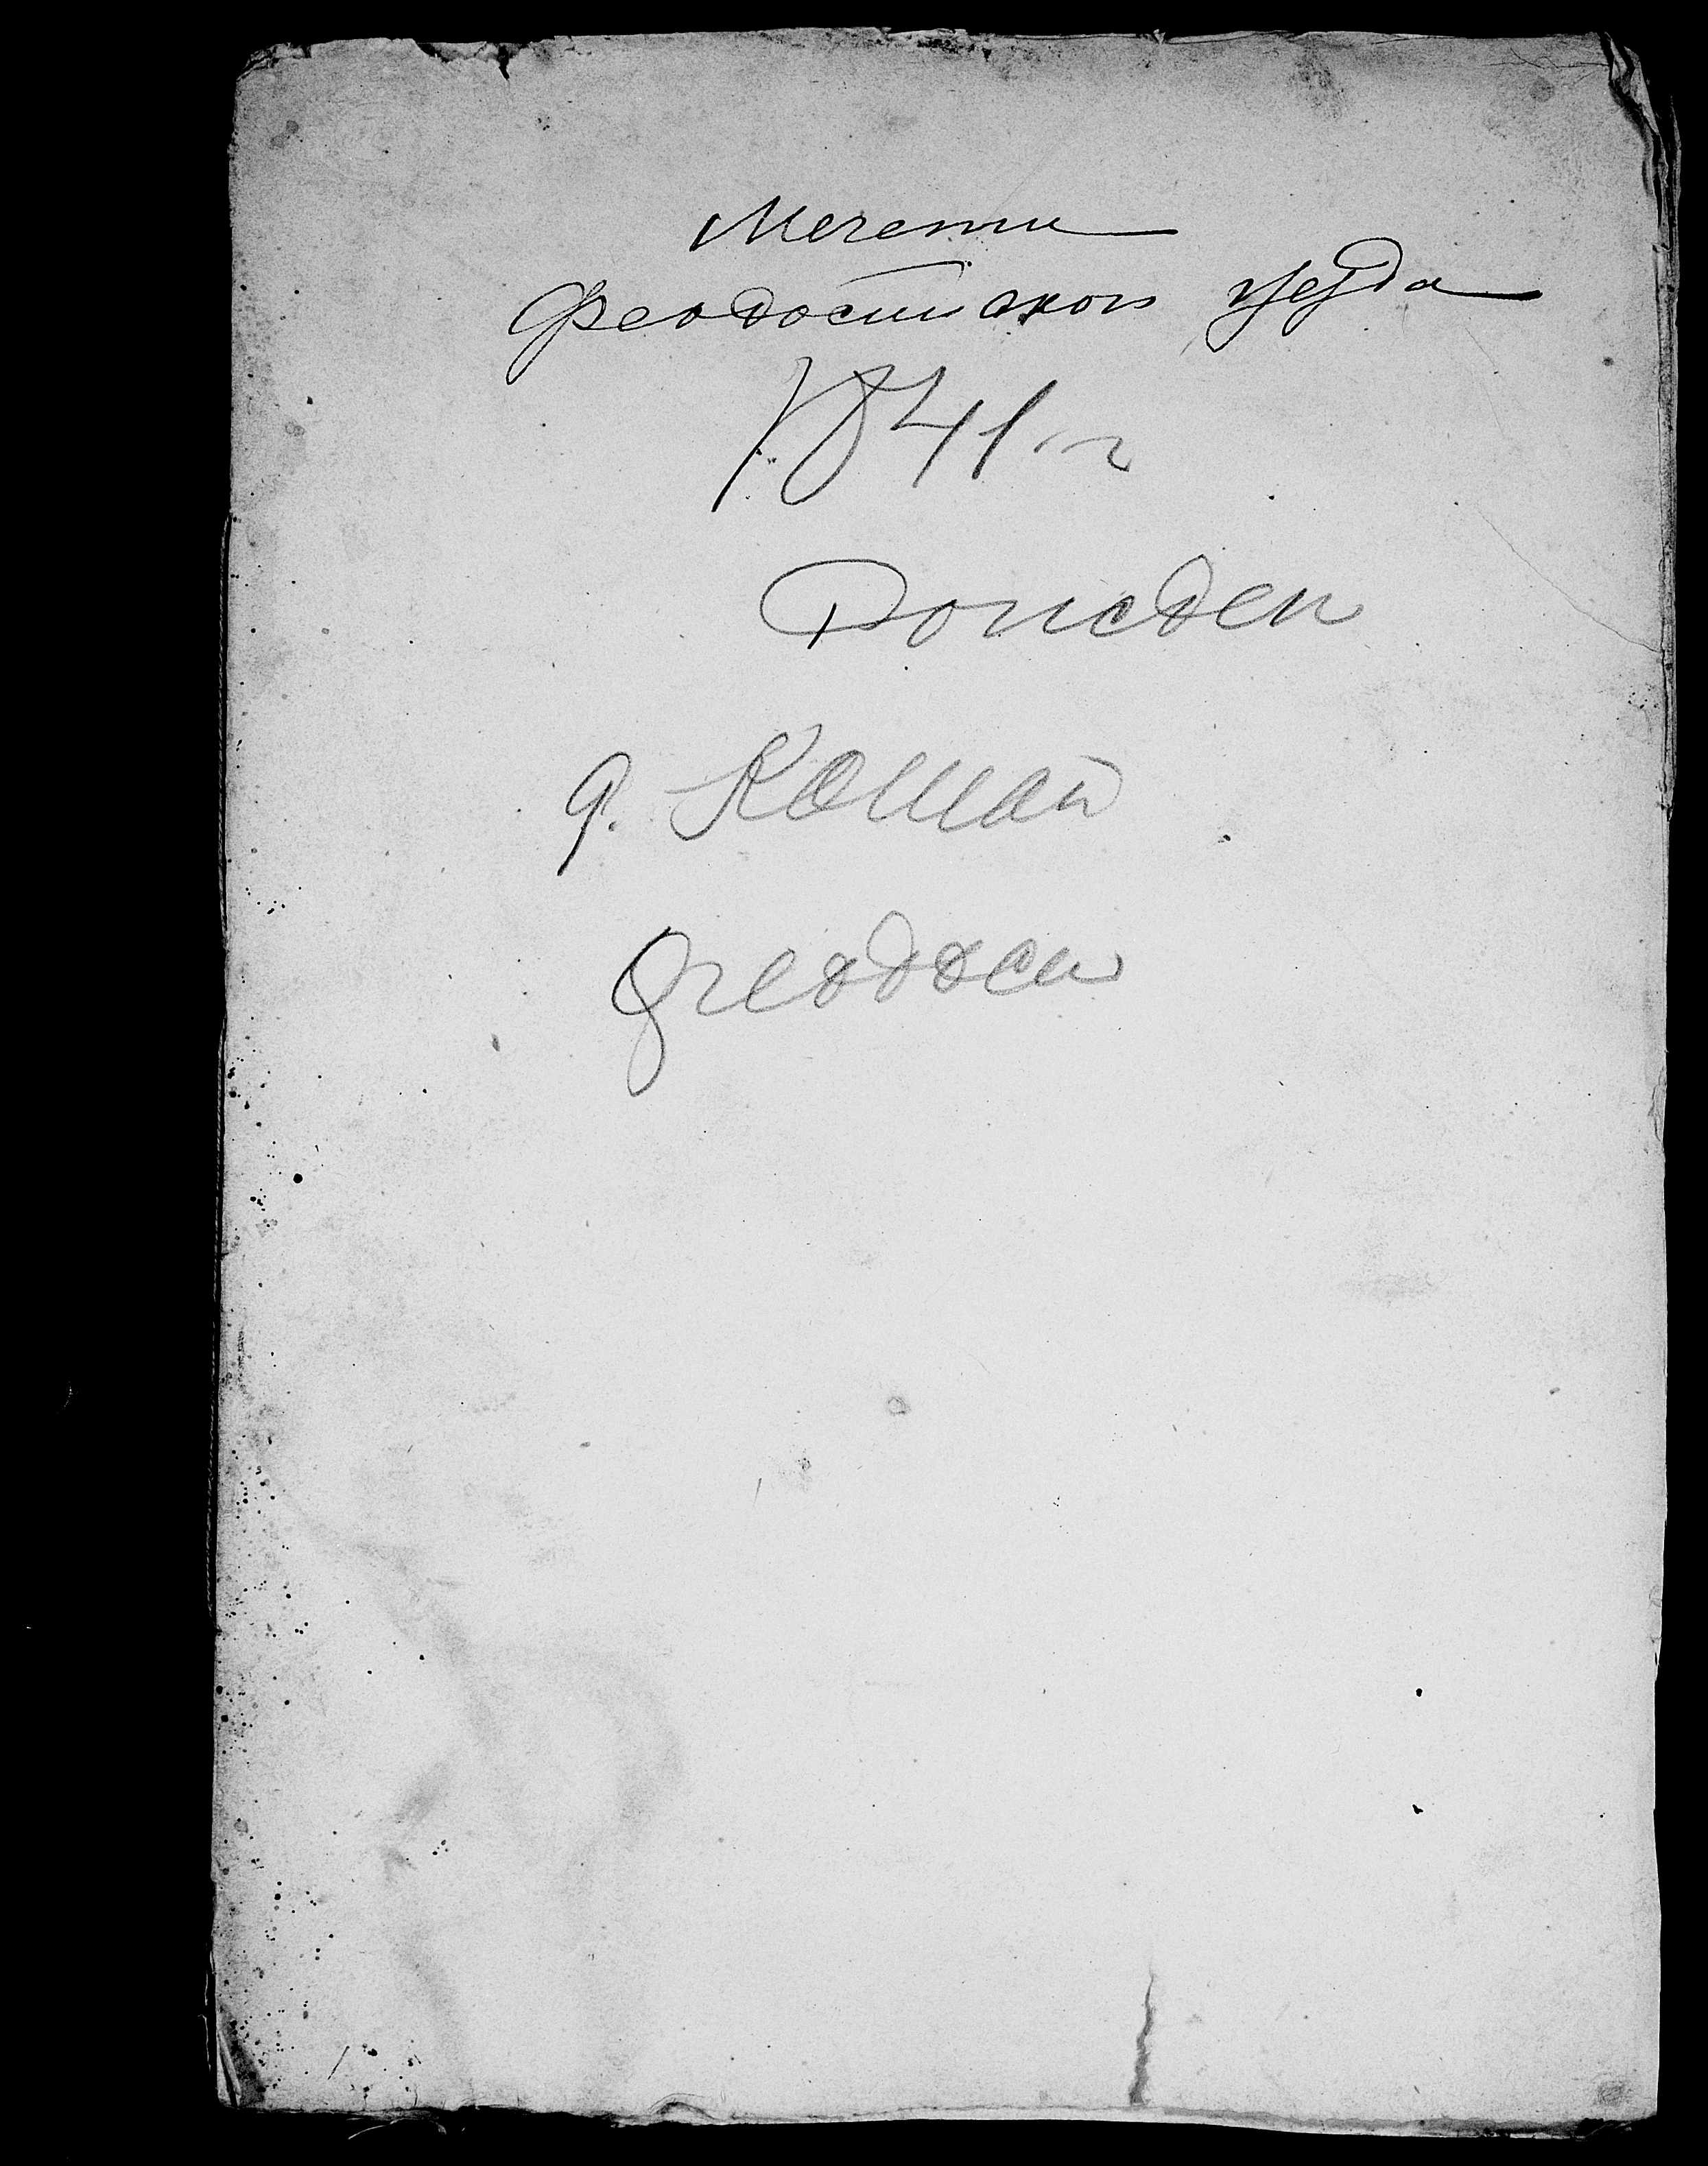 Мечети
Феодосийского уезда
1841 г
Рожден
д. Кашай
Феодоси